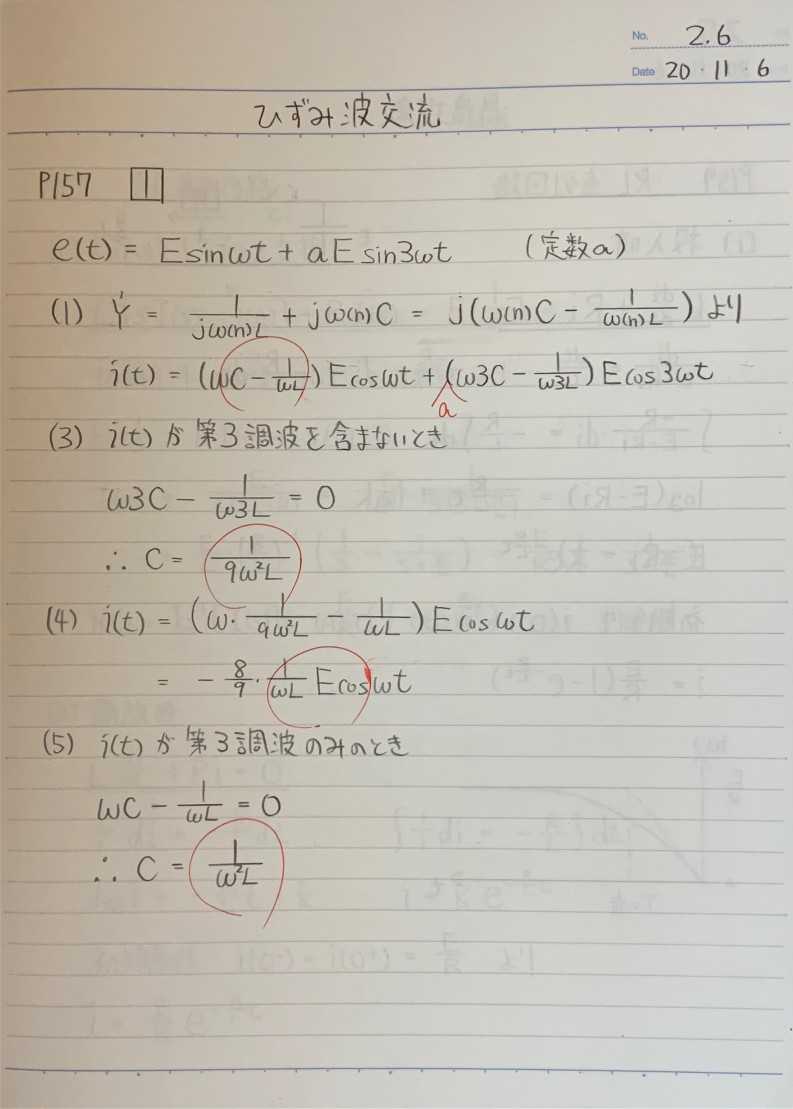 No. 2.6
Date 20・11・6
ひずみ波交流
P157 1
e(t) = E sinωt + aE sin3ωt (定数a)
(1) Ẏ = 1/(jω(n)L) + jω(n)C = j(ω(n)C - 1/(ω(n)L)) より
i(t) = (ωC - 1/(ωL)) E cosωt + (ω3C - 1/(ω3L)) E cos3ωt
a
(3) i(t) が 第3調波を含まないとき
ω3C - 1/(ω3L) = 0
∴ C = 1/(9ω²L)
(4) i(t) = (ω・1/(9ω²L) - 1/(ωL)) E cosωt
= - 8/9・1/(ωL) E cosωt
(5) i(t) が 第3調波のみのとき
ωC - 1/(ωL) = 0
∴ C = 1/(ω²L)